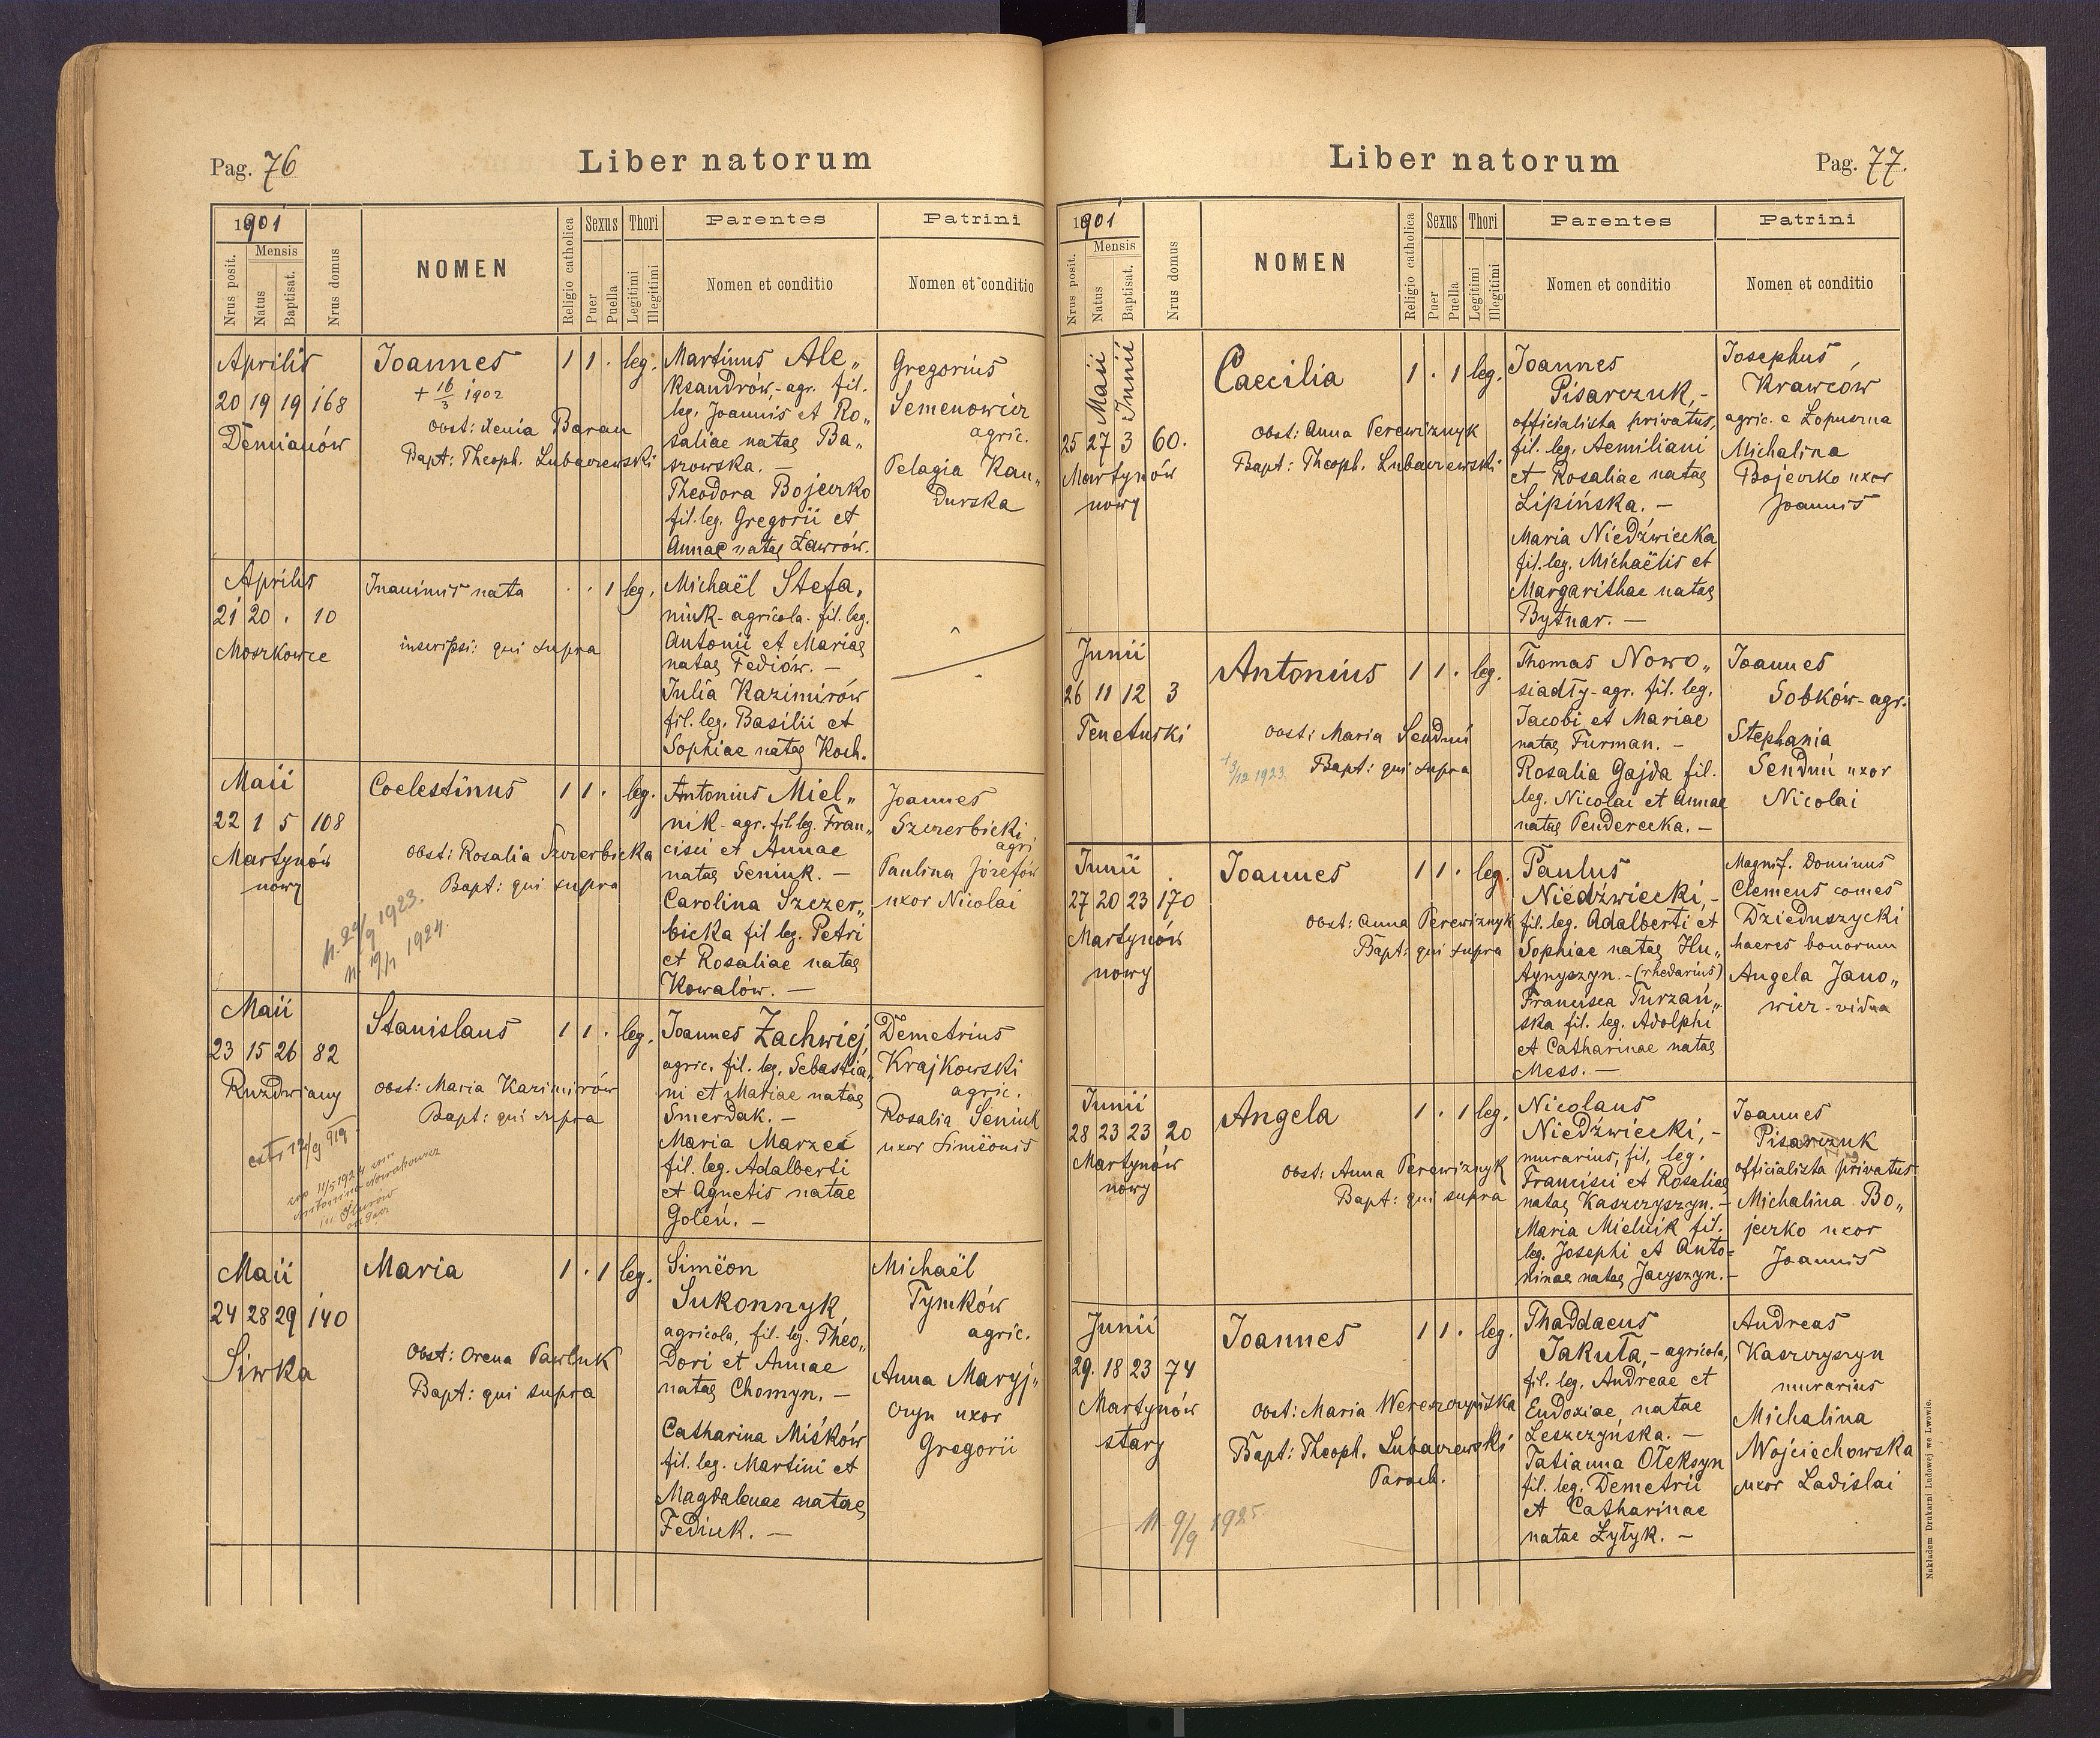 Pag. 76
Liber natorum
1901
Nrus posit.
Mensis
Natus
Baptisat.
Nrus domus
NOMEN
Religio catholica
Sexus
Puer
Puella
Thori
Legitimi
Illegitimi
Parentes
Nomen et conditio
Patrini
Nomen et conditio
Aprilis
20 19 19 168
Demianów
Joannes
+ 16/3 1902
obst: Xenia Baran
Bapt: Theoph. Lubaczewski
1 1 . leg.
Martinus Ale„
ksandrów, agr. fil.
leg. Joannis et Ro„
saliae natae Ba„
szowska. —
Theodora Bojeczko
fil. leg. Gregorii et
Annae natae Ławrów.
Gregorius
Semenowicz
agric.
Pelagia Kan„
durska
Aprilis
21 20 . 10
Moszkowce
Inanimis nata
inscripsi: qui supra
. . 1 leg.
Michaël Stefa„
niuk - agricola. fil. leg.
Antonii et Mariae
natae Fediów. —
Julia Kazimirów
fil. leg. Basilii et
Sophiae natae Koch.
Maii
22 1 5 108
Martynów
nowy
Coelestinus
obst: Rosalia Szczerbicka
Bapt: qui supra
1923.
1924
1 1 . leg.
Antonius Miel„
nik - agr. fil. leg. Fran„
cisci et Annae
natae Seniuk. —
Carolina Szczer„
bicka fil leg. Petri
et Rosaliae natae
Kowalów. —
Joannes
Szczerbicki
agri.
Paulina Józefów
uxor Nicolai
Maii
23 15 26 82
Ruzdwiany
Stanislaus
obst: Maria Kazimirów
Bapt: qui supra
extr. 12/9 919
11/5 1924
Antonina Nowakowicz
1 1 . leg.
Joannes Zachwiej,
agric. fil. leg. Sebastia„
ni et Mariae natae
Smerdak. —
Maria Marzec
fil. leg. Adalberti
et Agnetis natae
Goleń. —
Demetrius
Krajkowski
agric.
Rosalia Seniuk
uxor Simëonis
Maii
24 28 29 140
Siwka
Maria
Obst: Orena Pawluk
Bapt: qui supra
1 . 1 leg.
Simëon
Sukonnyk,
agricola, fil. leg. Theo„
dori et Annae
natae Chomyn. —
Catharina Miśków
fil. leg. Martini et
Magdalenae natae
Fediuk. —
Michaël
Tymków
agric.
Anna Maryj„
czyn uxor
Gregorii
Liber natorum
Pag. 77.
1901
Nrus posit.
Mensis
Natus
Baptisat.
Nrus domus
NOMEN
Religio catholica
Sexus
Puer
Puella
Thori
Legitimi
Illegitimi
Parentes
Nomen et conditio
Patrini
Nomen et conditio
Maii
Junii
25 27 3 60.
Martynów
nowy
Caecilia
Obst: Anna Perewiznyk
Bapt: Theoph. Lubaczewski
1 . 1 leg.
Joannes
Pisarczuk, -
officialista privatus,
fil. leg. Aemiliani
et Rosaliae natae
Lipińska. —
Maria Niedźwiecka
fil. leg. Michaëlis et
Margarithae natae
Bytnar. —
Josephus
Krawców
agric. e Łopuszna
Michalina
Bojeczko uxor
Joannis
Junii
26 11 12 3
Tenetniki
Antonius
obst: Maria Senduń
+ 3/12 1923.
Bapt: qui supra
1 1 . leg.
Thomas Nowo„
siadły - agr. fil. leg.
Jacobi et Mariae
natae Furman. —
Rosalia Gajda fil.
leg. Nicolai et Annae
natae Penderecka. —
Joannes
Sobków - agr.
Stephania
Senduń uxor
Nicolai
Junii
27 20 23 170
Martynów
nowy
Joannes
obst: Anna Perewiznyk
Bapt: qui supra
1 1 . leg.
Paulus
Niedźwiecki, -
fil. leg. Adalberti et
Sophiae natae Hu„
tynyszyn. - (rhedarius)
Francisca Turzań„
ska fil. leg. Adolphi
et Catharinae natae
Mess. —
Magnif. Dominus
Clemens comes
Dzieduszycki
haeres bonorum
Angela Jano„
wicz - vidua
Junii
28 23 23 20
Martynów
nowy
Angela
obst: Anna Perewiznyk
Bapt: qui supra
1 . 1 leg.
Nicolaus
Niedźwiecki, -
murarius, fil. leg.
Francisci et Rosaliae
natae Kaszczyszyn. -
Maria Mielnik fil.
leg. Josephi et Anto=
ninae natae Jacyszyn. -
Joannes
Pisarczuk
officialista privatus
Michalina Bo„
jeczko uxor
Joannis
Junii
29. 18 23 74
Martynów
stary
Joannes
obst: Maria Wereszczyńska
Bapt: Theoph. Lubaczewski
Paroch.
9/9 1925.
1 1 . leg.
Thaddaeus
Jakuta, - agricola,
fil. leg. Andreae et
Eudoxiae, natae
Leszczyńska. —
Tatianna Ołeksyn
fil. leg. Demetrii
et Catharinae
natae Łytyk. —
Andreas
Kaszczyszyn
murarius
Michalina
Wojciechowska
uxor Ladislai
Nakładem Drukarni Ludowej we Lwowie.